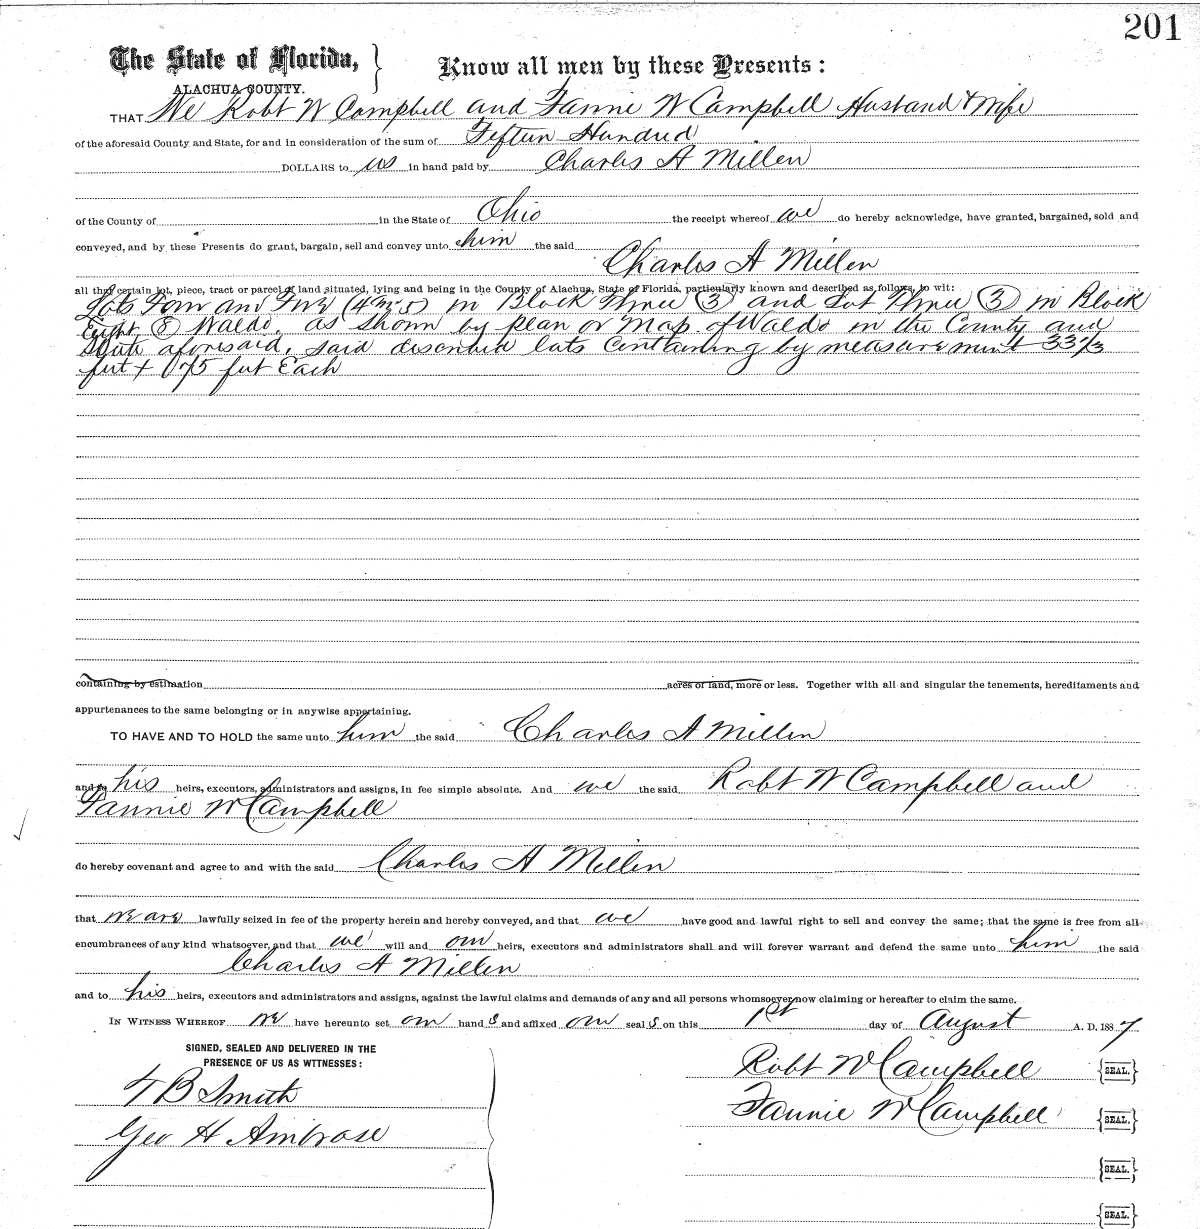 201
The State of Florida, } Know all men by these Presents :
ALACHUA COUNTY.
THAT We Robt W Campbell and Fannie W Campbell Husband & Wife
of the aforesaid County and State, for and in consideration of the sum of Fifteen Hundred
DOLLARS to us in hand paid by Charles A Millen
of the County of in the State of Ohio the receipt whereof we do hereby acknowledge, have granted, bargained, sold and
conveyed, and by these Presents do grant, bargain, sell and convey unto him the said
Charles A Millen
all that certain lot, piece, tract or parcel of land situated, lying and being in the County of Alachua, State of Florida, particularly known and described as follows, to wit:
Lots Four and Five (4 & 5) in Block Three (3) and Lot Three (3) in Block
Eight (8) Waldo, as shown by plan or Map of Waldo in the County and
State aforesaid, said described lots containing by measurement 33 1/3
feet + 75 feet Each
containing by estimation acres of land, more or less. Together with all and singular the tenements, hereditaments and
appurtenances to the same belonging or in anywise appertaining.
TO HAVE AND TO HOLD the same unto him the said Charles A Millen
and to his heirs, executors, administrators and assigns, in fee simple absolute. And we the said Robt W Campbell and
Fannie W Campbell
do hereby covenant and agree to and with the said Charles A Millen
that we are lawfully seized in fee of the property herein and hereby conveyed, and that we have good and lawful right to sell and convey the same; that the same is free from all
encumbrances of any kind whatsoever, and that we will and our heirs, executors and administrators shall and will forever warrant and defend the same unto him the said
Charles A Millen
and to his heirs, executors and administrators and assigns, against the lawful claims and demands of any and all persons whomsoever now claiming or hereafter to claim the same.
IN WITNESS WHEREOF we have hereunto set our hands and affixed our seals on this 1st day of August A. D. 1887
SIGNED, SEALED AND DELIVERED IN THE
PRESENCE OF US AS WITNESSES:
Robt W Campbell {SEAL.}
B Smith
Fannie W Campbell {SEAL.}
Geo H Ambrose
{SEAL.}
{SEAL.}